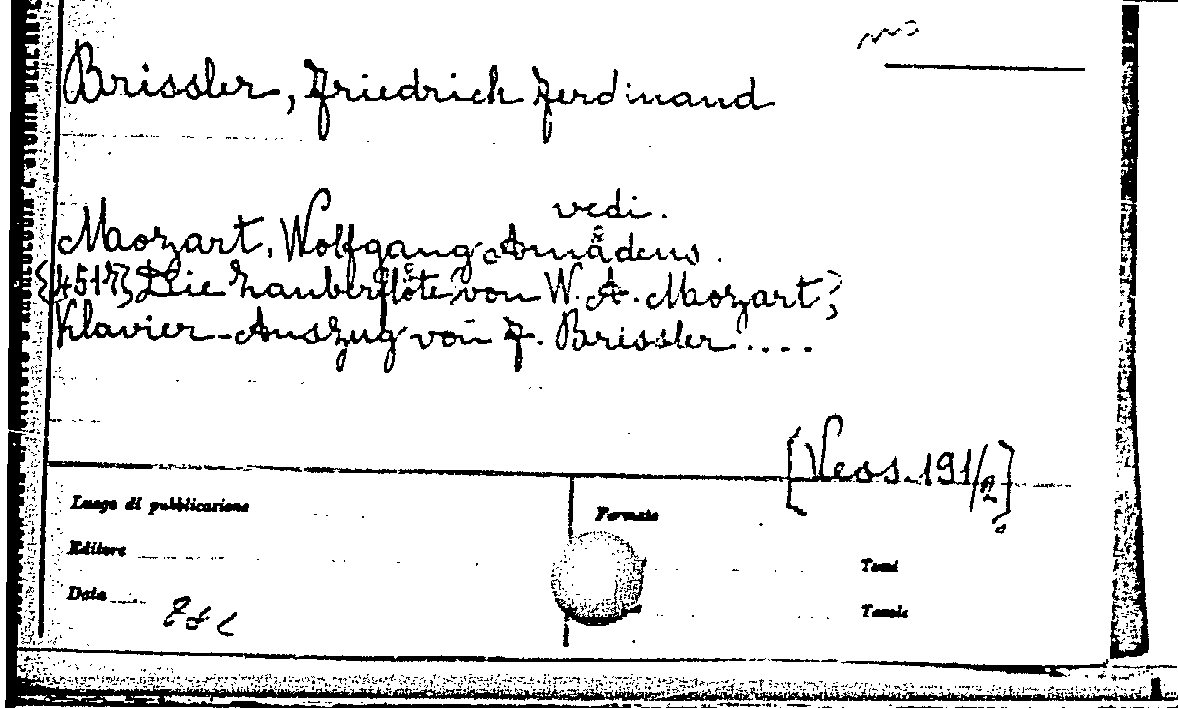 Brissler, Friedrich Ferdinand
vedi.
Mozart, Wolfgang Amadeus.
{4517} Die Zauberflöte von W. A. Mozart;
Klavier-Auszug von F. Brissler....
[Noss. 191/2]
Luogo di pubblicazione
Formato
Editore
Tomi
Data
Tavole